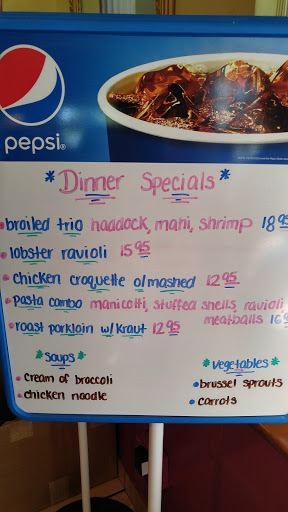 pepsi®
*Dinner Specials*
broiled trio haddock, mahi, shrimp 18 95
lobster ravioli 15 95
chicken croquette w/mashed 12 95
pasta combo manicotti, stuffed shells, ravioli
meatballs 16
roast porkloin w/kraut 12 95
*Soups*
cream of broccoli
chicken noodle
*Vegetables*
brussel sprouts
carrots